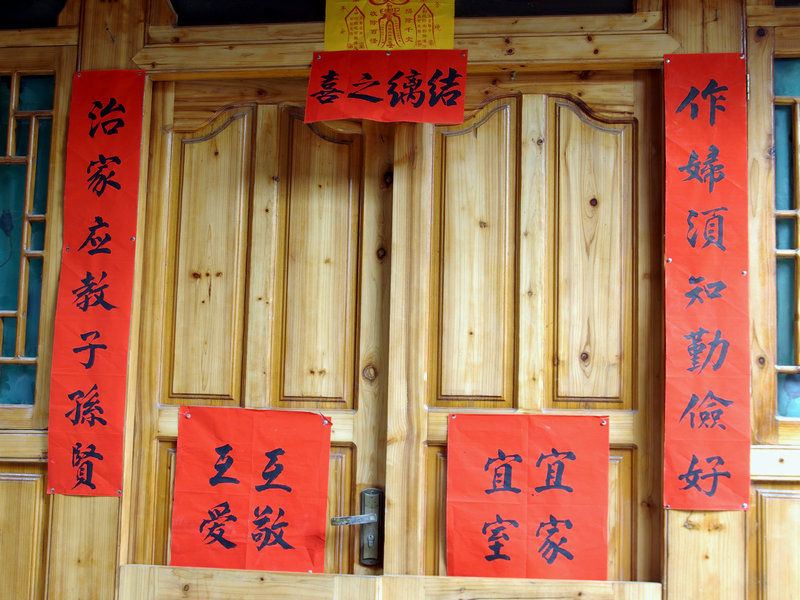 結縭之喜
作婦須知勤儉好
治家应教子孫賢
宜家
宜室
互敬
互愛